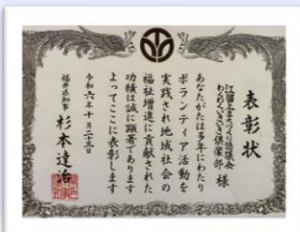 表彰状
江留上まちづくり協議会
わくわくいきいき倶楽部 様
あなたがたは多年にわたり
ボランティア活動を
実践され地域社会の
福祉増進に貢献された
功績は誠に顕著であります
よってここに表彰します
令和六年十月二十三日
福井県知事 杉本達治